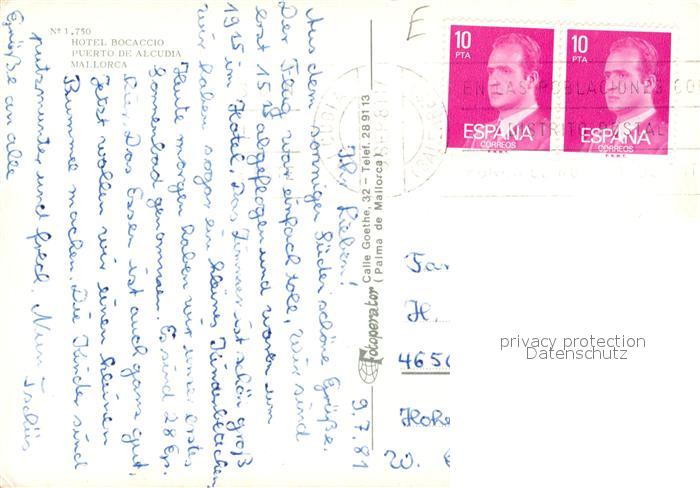 Nº 1.750
HOTEL BOCACCIO
PUERTO DE ALCUDIA
MALLORCA
E
10
PTA
ESPAÑA
CORREOS
F.N.M.T.
10
PTA
ESPAÑA
CORREOS
F.N.M.T.
EN LAS POBLACIONES CO
DISTRITO POSTAL
Fotoperator Calle Goethe, 32 - Telef. 28 91 13
(Palma de Mallorca)
9.7.81
Ihr Lieben!
Aus dem sonnigen Süden schöne Grüße.
Der Flug war einfach toll, wir sind
erst 15 15 abgeflogen und waren um
19 15 im Hotel. Das Zimmer ist schön groß
wir haben sogar ein kleines Kinderbettchen.
Heute morgen haben wir unser erstes
Sonnenbad genommen. Es sind 28 Gr.
hier. Das Essen ist auch ganz gut.
Jetzt wollen wir einen kleinen
Bummel machen. Die Kinder sind
putzmunter und frech. Nun Tschüs
Grüße an alle
Fa
H.
465
Hohe
W.
privacy protection
Datenschutz